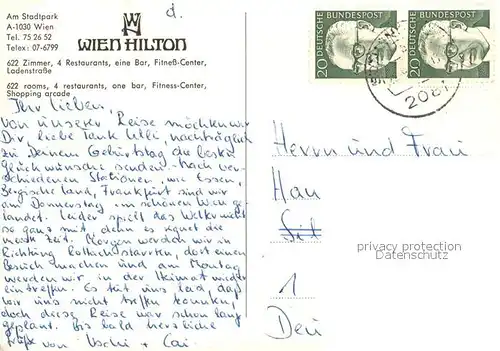 d.
Am Stadtpark
A-1030 Wien
Tel. 75 26 52
Telex: 07-6799
WIEN HILTON
622 Zimmer, 4 Restaurants, eine Bar, Fitneß-Center,
Ladenstraße
622 rooms, 4 restaurants, one bar, Fitness-Center,
Shopping arcade
20 DEUTSCHE BUNDESPOST
20 DEUTSCHE BUNDESPOST
208
Ihr Lieben,
von unserer Reise möchten wir
Dir liebe Tante Ulli, nachträglich
zu Deinem Geburtstag die besten
Glückwünsche senden. Nach ver-
schiedenen Stationen, wie Essen,
Bergische Land, Frankfurt sind wir
am Donnerstag im schönen Wien ge-
landet. Leider spielt das Wetter nicht
so ganz mit, denn es regnet die
meiste Zeit. Morgen werden wir in
Richtung starten, dort einen
Besuch machen und am Montag
werden wir in der Heimat wieder
eintreffen. Es tut uns leid, daß
wir uns nicht treffen konnten,
doch diese Reise war schon lang
geplant. Bis bald herzliche
Grüße von Uschi + Cai
Herrn und Frau
Hau
1
privacy protection